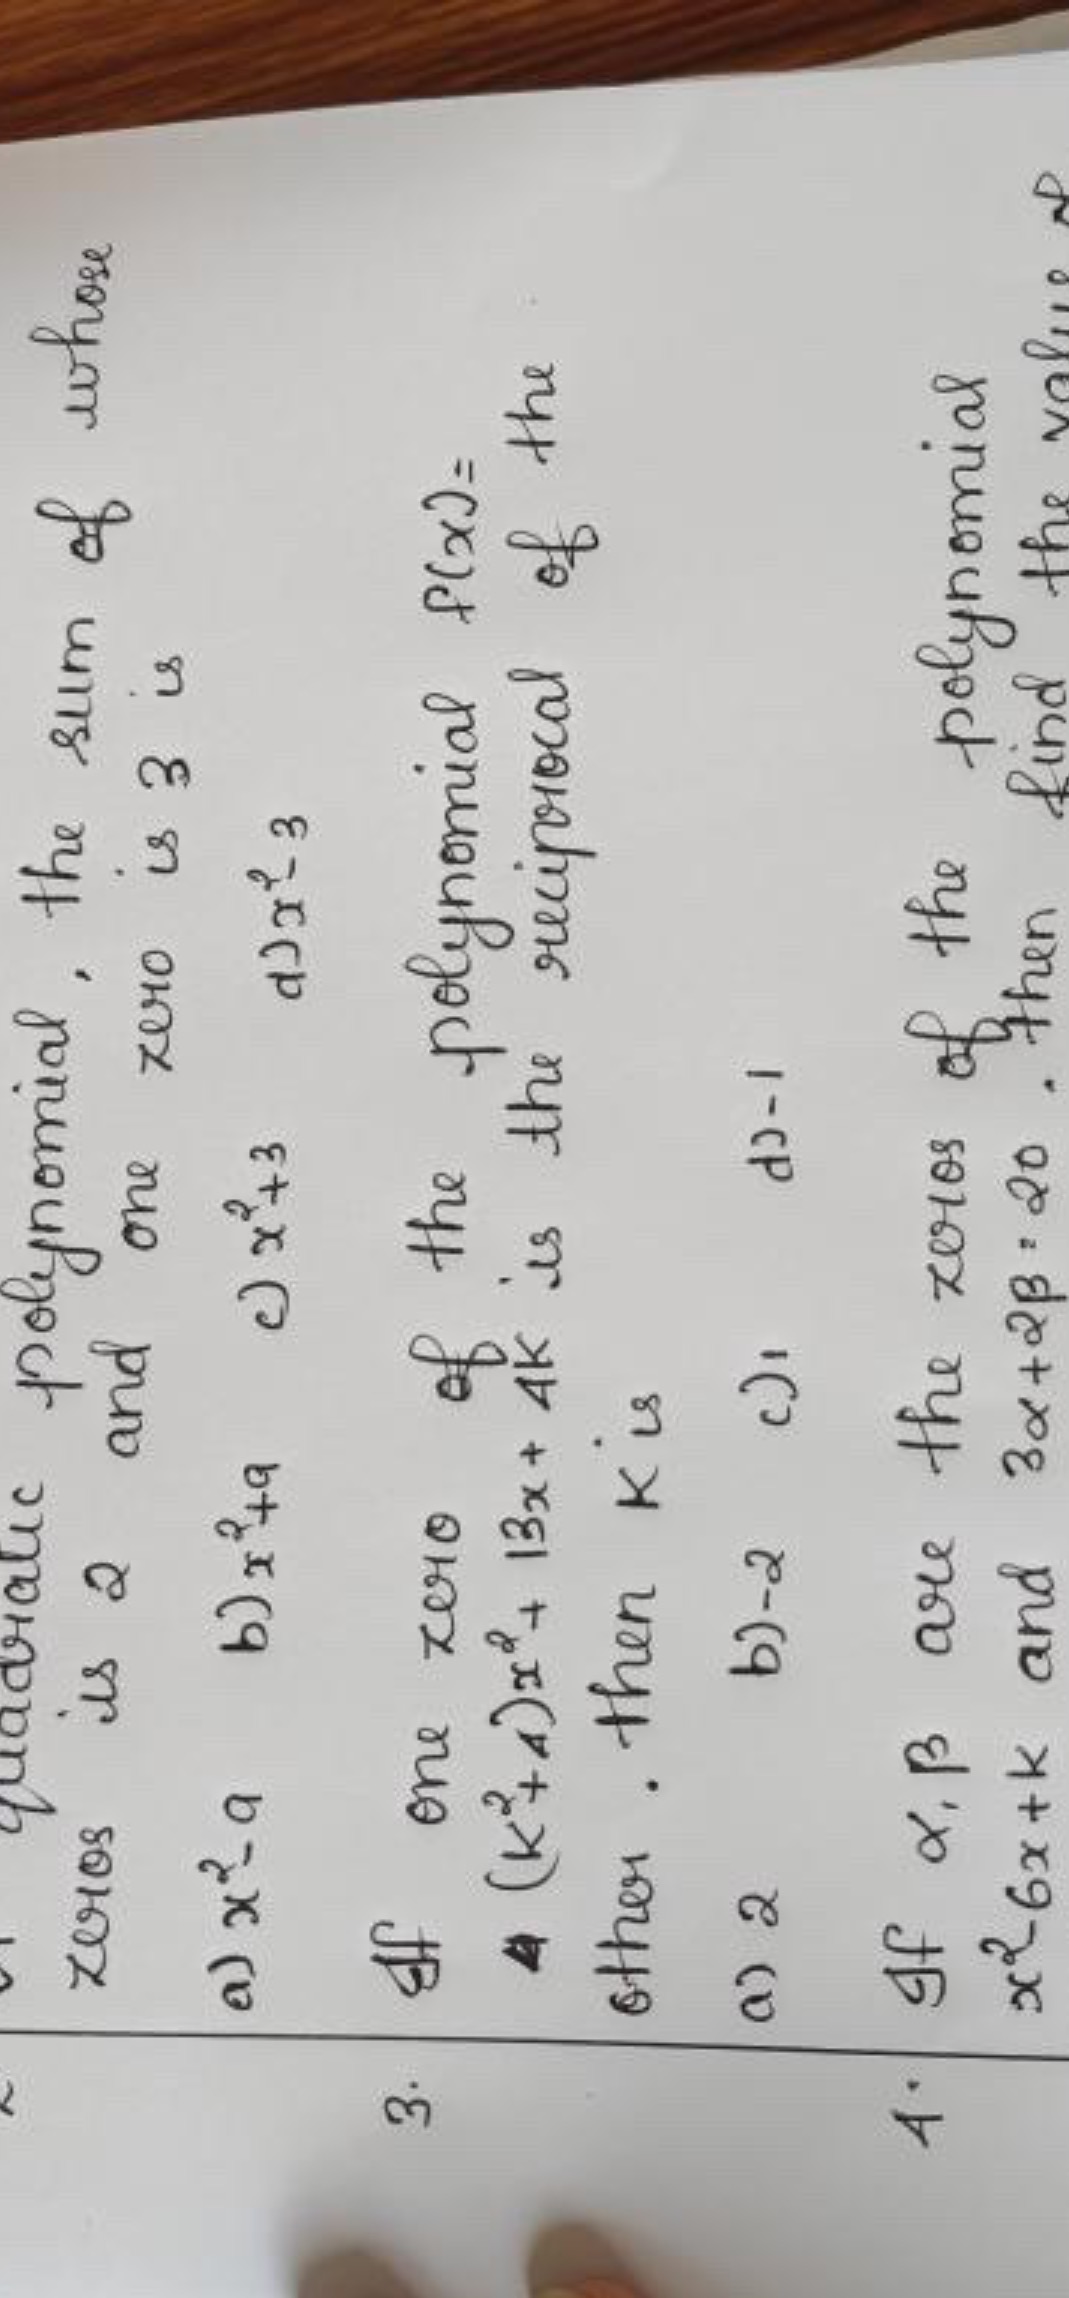 quadratic polynomial, the sum of whose
zeros is 2 and one zero is 3 is
a) x²-9 b) x²+9 c) x²+3 d) x²-3
3. If one zero of the polynomial f(x)=
(K²+4)x²+13x+4K is the reciprocal of the
other. then K is
a) 2 b) -2 c) 1 d) -1
4. If α, β are the zeros of the polynomial
x²-6x+k and 3α+2β=20. then find the value